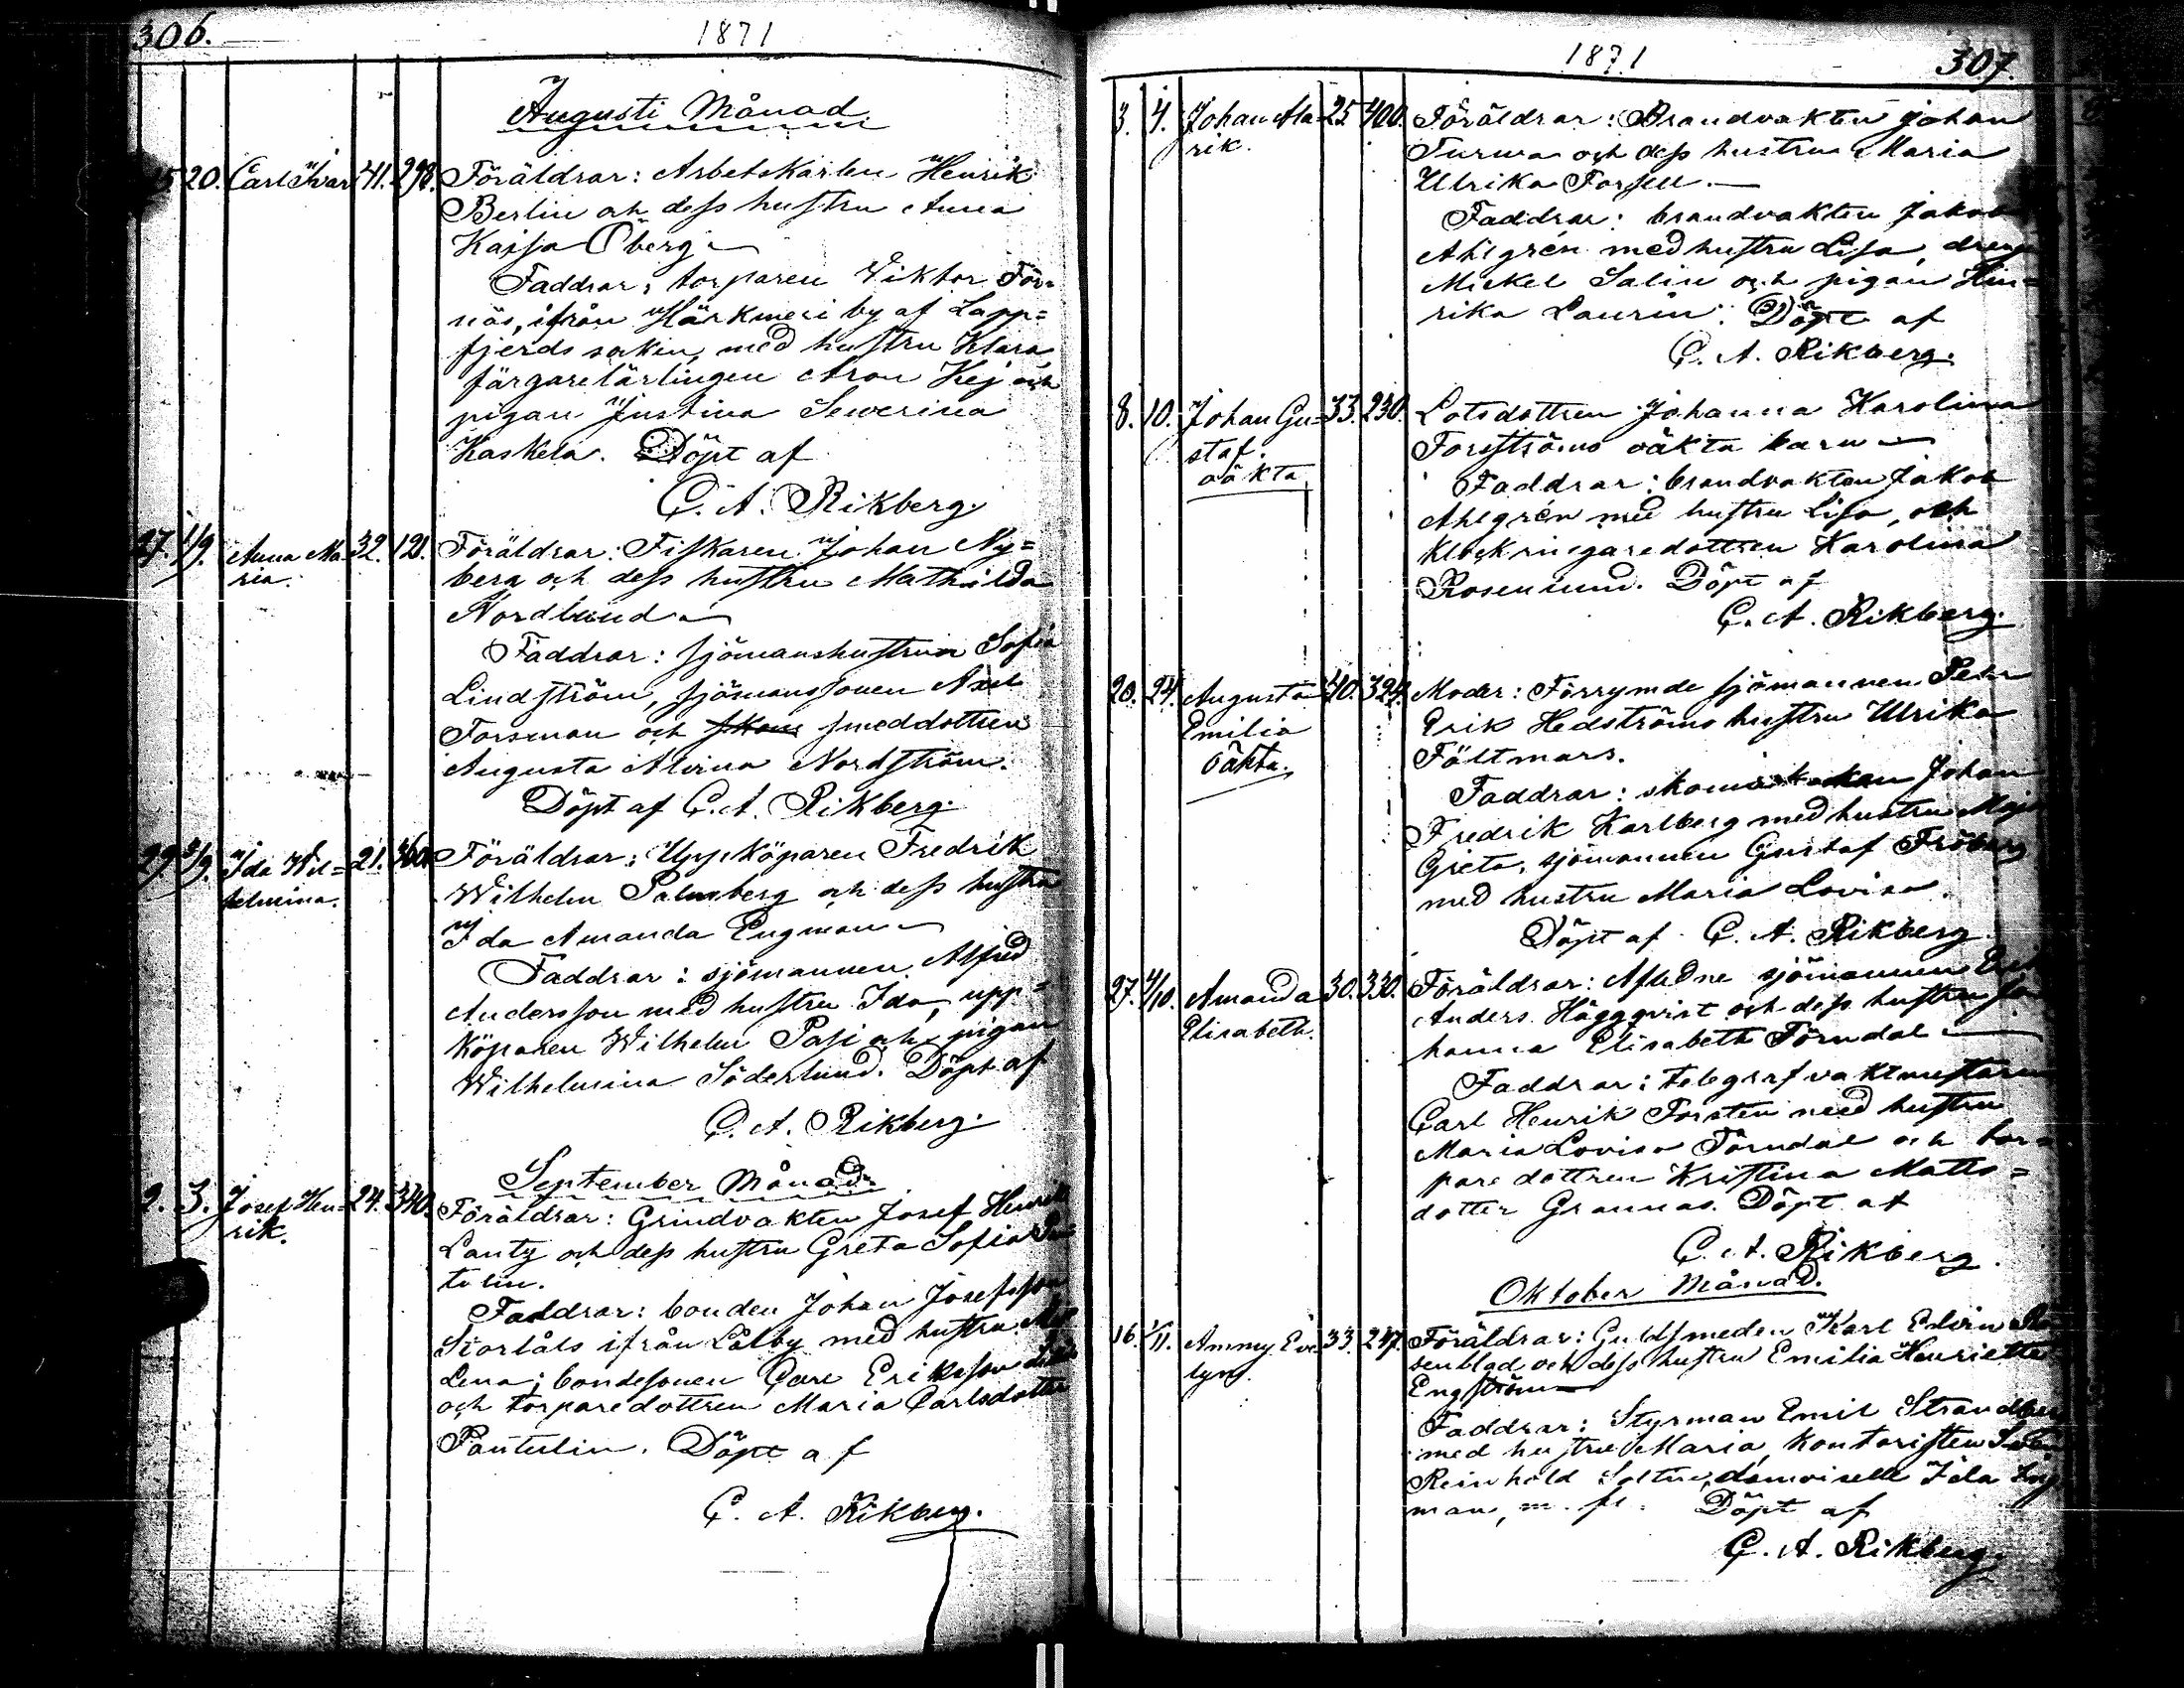 306.
1871
Augusti Månad.
15 20. Carl Ivar 41. 298. Föräldrar: Arbetskarlen Henrik
Berlin och dess hustru Anna
Kajsa Öberg
Faddrar: torparen Viktor För=
näs, ifrån Härkmeri by af Lapp=
fjerds sokn, med hustru Klara,
färgarelärlingen Aron Kej och
pigan Justina Sewerina
Kaskela. Döpt af
C. A. Rikberg.
27. 1/9. Anna Ma= 32. 121. Föräldrar: Fiskaren Johan Ny=
ria. berg och dess hustru Mathilda
Nordlund
Faddrar: sjömanshustrun Sofia
Lindström, sjömanssonen Axel
Forsman och smeddottren
Augusta Alvina Nordström.
Döpt af C. A. Rikberg.
29. /9. Ida Wil= 21. 360. Föräldrar: Uppköparen Fredrik
helmina. Wilhelm Palmberg och dess hustru
Ida Amanda Engman
Faddrar: sjömannen Alfred
Andersson med hustru Ida, upp=
köparen Wilhelm Pasi och pigan
Wilhelmina Söderlund. Döpt af
C. A. Rikberg.
September Månad.
2. 3. Josef Hen= 24. 340. Föräldrar: Grindvakten Josef Henrik
rik. Lantz och dess hustru Greta Sofia
tulin.
Faddrar: bonden Johan Josefsson
Storlåls ifrån Lålby med hustru
Lena; bondesonen Carl Eriksson
och torparedottren Maria Carlsdotter
Pantulin. Döpt af
C. A. Rikberg.
1871
307.
3. 4. Johan Ala= 25. 400. Föräldrar: Brandvakten Johan
rik. Turma och dess hustru Maria
Ulrika Forsell.
Faddrar: brandvakten Jakob
Ahlgrén med hustru Lisa, dreng
Mickel Salin och pigan Hen=
rika Laurin. Döpt af
C. A. Rikberg.
8. 10. Johan Gu= 33. 230. Lotsdottren Johanna Karolina
staf. Forsströms oäkta barn
oäkta
Faddrar: brandvakten Jakob
Ahlgrén med hustru Lisa, och
klockringaredottren Karolina
Rosenlund. Döpt af
C. A. Rikberg.
20. 24. Augusta 40. 324. Moder: Förrymde sjömannen Pehr
Emilia Erik Hedströms hustru Ulrika
Oäkta. Fältmars.
Faddrar: Johan
Fredrik Karlberg med hustru Maja
Greta, sjömannen Gustaf Fröberg
med hustru Maria Lovisa.
Döpt af C. A. Rikberg.
27. 4/10. Amanda 30. 330. Föräldrar: Aflidne sjömannen
Elisabeth. Anders Häggqvist och dess hustru Jo=
hanna Elisabeth Törndal
Faddrar: telegrafvaktmästaren
Carl Henrik Forstén med hustru
Maria Lovisa Törndal och tor=
paredottren Kristina Matts=
dotter Grannas. Döpt af
C. A. Rikberg.
Oktober Månad.
16. /11. Ammy Eve= 33. 247. Föräldrar: Guldsmeden Karl Edvin Ro=
lyng. senblad och dess hustru Emilia Henriette
Engström
Faddrar: Styrman Emil Strandberg
med hustru Maria, kontoristen
Reinhold , demoiselle Ida
man, m. fl. Döpt af
C. A. Rikberg.